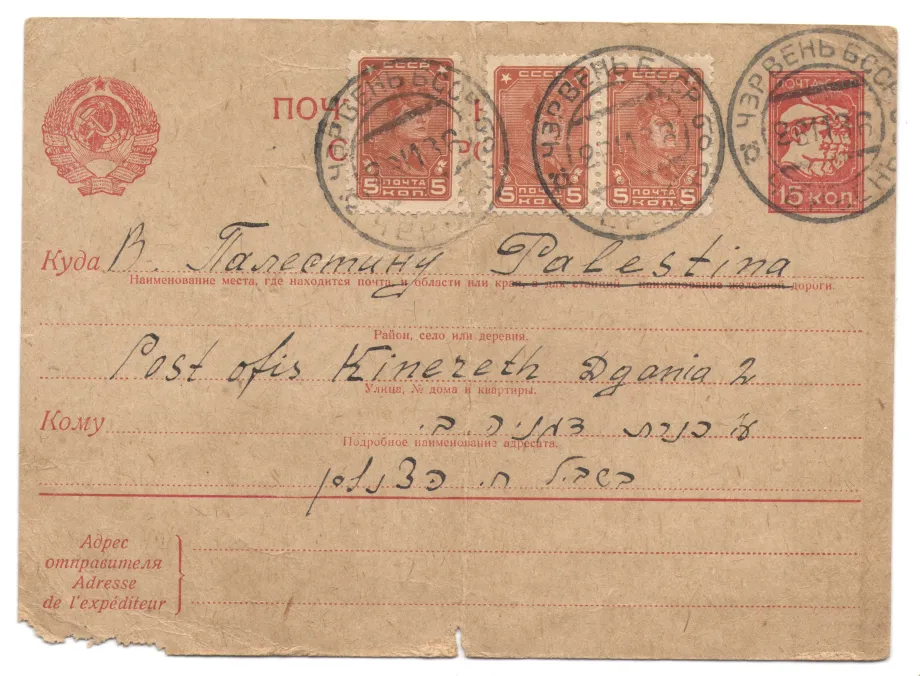 ПОЧ
СССР
5 ПОЧТА 5
КОП.
СССР
5 ПОЧТА 5
КОП.
СССР
5 ПОЧТА 5
КОП.
ПОЧТА СССР
15 КОП.
ЧЭРВЕНЬ БССР
ЧЭРВЕНЬ БССР
ЧЭРВЕНЬ БССР
Куда В. Палестину Palestina
Наименование места, где находится почта, и области или края, а для станций наименование железной дороги.
Район, село или деревня.
Post ofis Kinereth Dgania 2
Улица, № дома и квартиры.
Кому כנרת דגניה ב.
Подробное наименование адресата.
בשביל ח.
Адрес
отправителя
Adresse
de l'expéditeur